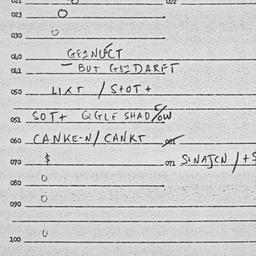 021 O 022
023 O
030 O
040 GEZNUCT
041 - BUT GEZDARFT
050 LIXT / STOT +
051 SOT+ GIGLE SHAD/OW
060 CANKE-N/ CANKT 061
070 $ 071 S+NATCN / +S
080 O
090 O
100 U